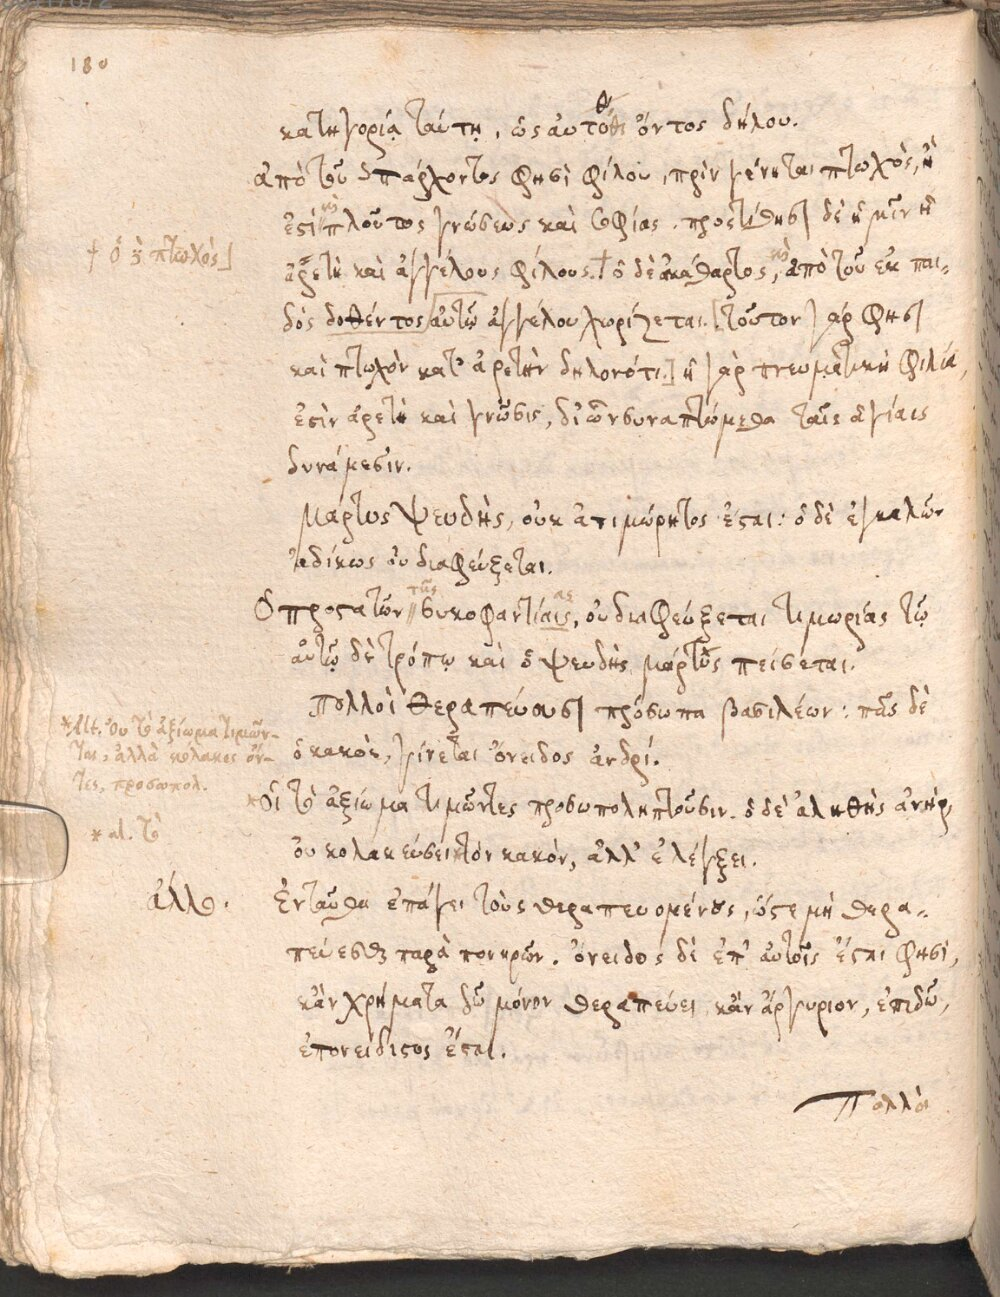 180
κατηγορίᾳ ταύτῃ, ὡς αὐτόθι ὄντος δήλου.
ἀπὸ τοῦ ὑπάρχοντος φησὶ φίλου, πρὶν γένηται πτωχὸς, ἡ
ἐστὶ πλοῦτος γνώσεως καὶ σοφίας. προστίθησι δὲ ἡμῖν ἡ
† ὁ πτωχὸς]
ἀρετὴ καὶ ἀγγέλους φίλους. † ὁ δὲ ἀκάθαρτος, ἀπὸ τοῦ ἐκ παι-
δὸς δοθέντος αὐτῷ ἀγγέλου χωρίζεται. [τοῦτον γάρ φησι
καὶ πτωχὸν κατ' ἀρετὴν δηλονότι.] ἡ γὰρ πνευματικὴ φιλία,
ἐστὶν ἀρετὴ καὶ γνῶσις, δι' ὧν συναπτόμεθα ταῖς ἁγίαις
δυνάμεσιν.
Μάρτυς ψευδὴς, οὐκ ἀτιμώρητος ἔσται: ὁ δὲ ἐγκαλῶν
ἀδίκως οὐ διαφεύξεται.
τῶν ας
Ὁ προστατῶν συκοφαντίαις, οὐ διαφεύξεται τιμωρίας τῷ
αὐτῷ δὲ τρόπῳ καὶ ὁ ψευδὴς μάρτυς πείσεται.
Πολλοὶ θεραπεύουσι πρόσωπα βασιλέων: πᾶς δὲ
ὁ κακὸς, γίνεται ὄνειδος ἀνδρί.
*Alt. Οὐ τὸ ἀξίωμα τιμῶν-
τες, ἀλλὰ κόλακες ὄν-
τες, προσωπολ.
*Οἱ τὸ ἀξίωμα τιμῶντες προσωποληπτοῦσιν. ὁ δὲ ἀληθὴς ἀνὴρ,
* al. τὸ
οὐ κολακεύσει τὸν κακόν, ἀλλ' ἐλέγξει.
ἄλλο. Ἐνταῦθα ἐπάγει τοὺς θεραπευομένους, ὥστε μὴ θερα-
πεύεσθαι παρὰ πονηρῶν. ὄνειδος δὲ ἐπ' αὐτοῖς ἔσται φησὶ,
κἂν χρήματα δῷ μόνον θεραπεύει κἂν ἀργύριον, ἐπιδῷ,
ἐπονείδιστος ἔσται.
Πολλοὶ